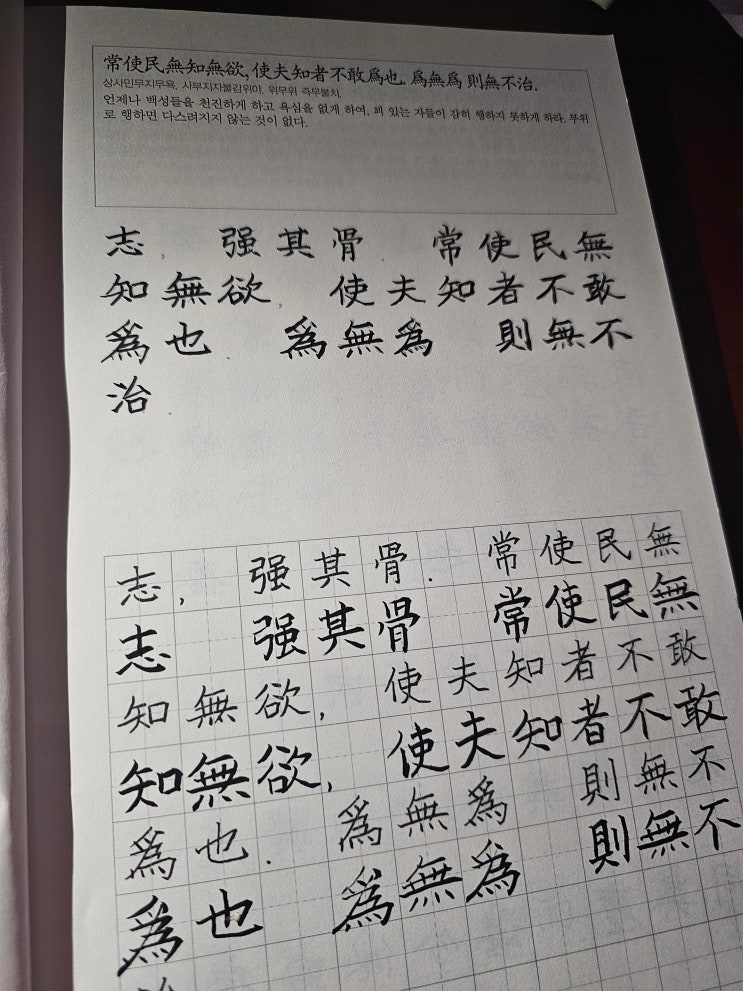 常使民無知無欲, 使夫知者不敢爲也. 爲無爲 則無不治.
상사민무지무욕, 사부지자불감위야. 위무위 즉무불치.
언제나 백성들을 천진하게 하고 욕심을 없게 하여, 꾀 있는 자들이 감히 행하지 못하게 하라. 무위
로 행하면 다스려지지 않는 것이 없다.
志, 强其骨. 常使民無
知無欲, 使夫知者不敢
爲也. 爲無爲 則無不
治.
志, 强其骨. 常使民無
志 强其骨 常使民無
知無欲, 使夫知者不敢
知無欲, 使夫知者不敢
爲也. 爲無爲 則無不
爲也 爲無爲 則無不